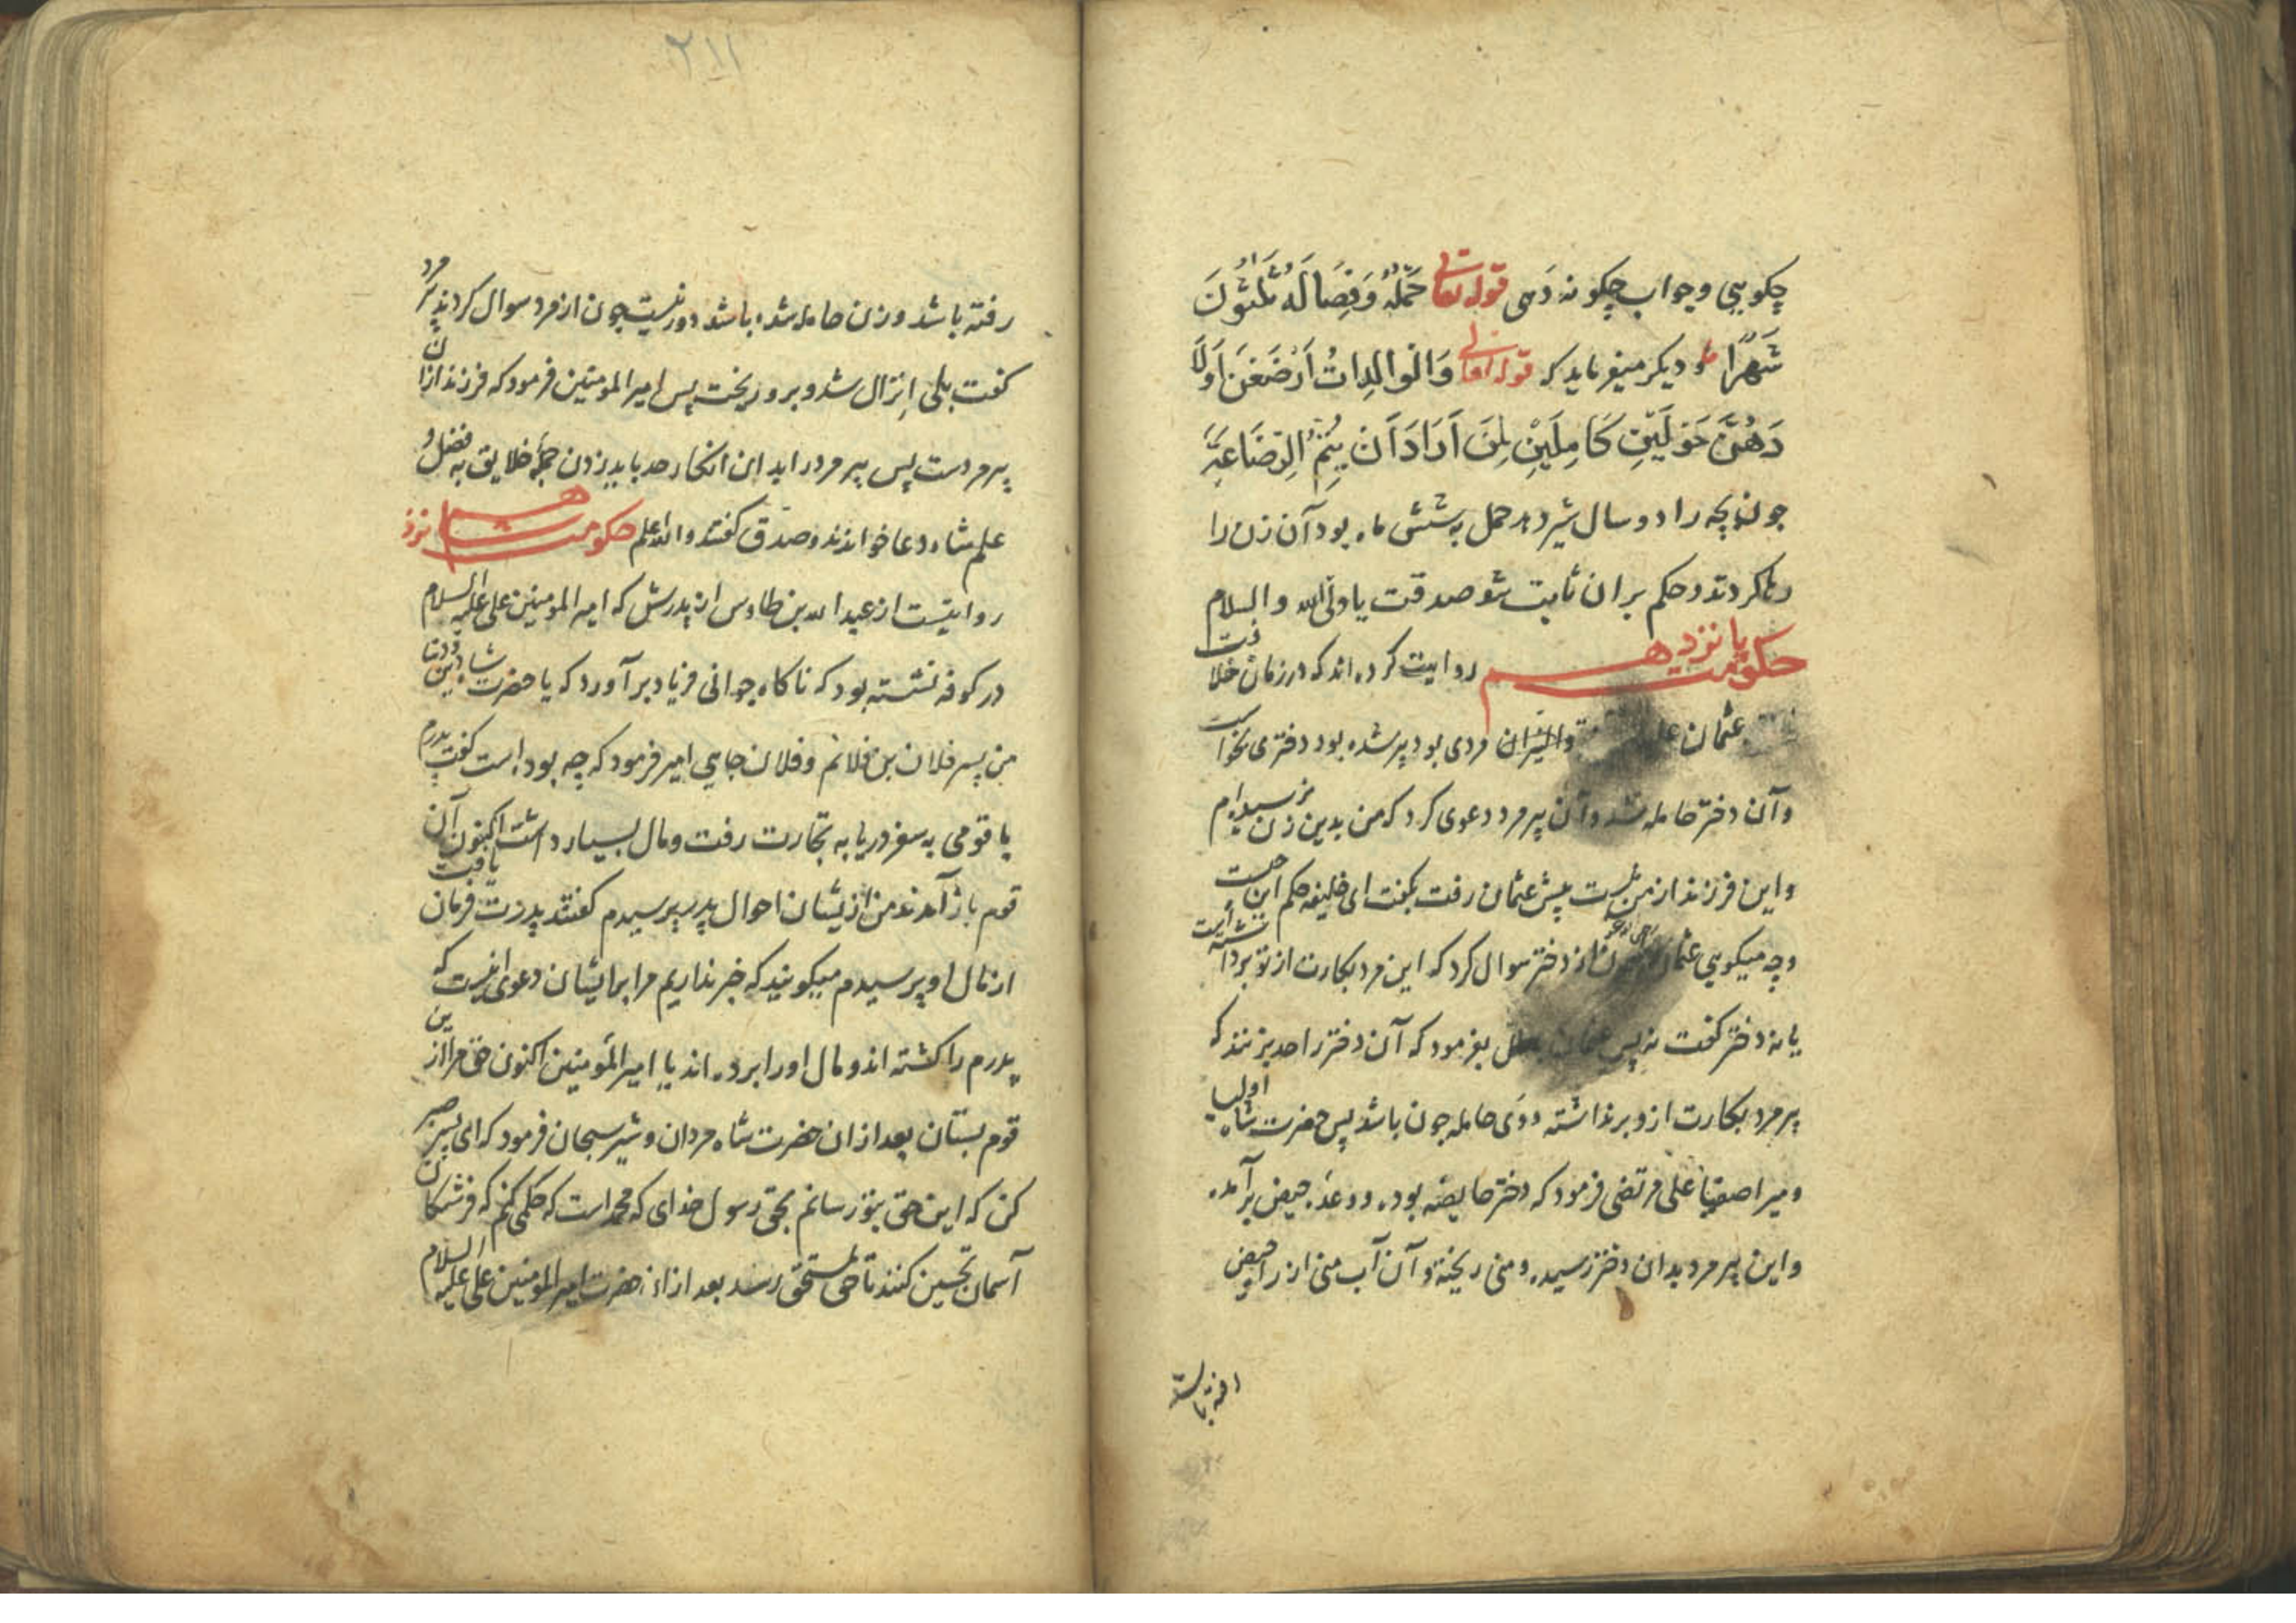 چکویی وجواب چکونه دهی قوله تعالی حَمْلُهُ وَفِصَالُهُ ثَلٰثُونَ
شَهْرًا و دیکر میفرماید که قوله تعالی وَالْوالِداتُ اَرْضَعْنَ اَولَا
دَهُنَّ حَوْلَیْنِ کَامِلَیْنِ لِمَنَ اَرَادَ اَنْ یُتِمَّ الرِّضَاعَةَ
جون بچه را دو سال شیر دهد حمل به شش ماه بود آن زن را
رها کردند و حکم بران ثابت شد صدقت یا ولی الله والسلام
حکومت پانزدهم روایت کرده اند که در زمان خلا
فت عثمان مردی بود پیر شده بود دختری بخواست
وآن دختر حامله شد وآن پیرمرد دعوی کرد که من بدین زن نرسیده ام
واین فرزند از من نیست پیش عثمان رفت بکفت ای خلیفه حکم این چیست
وچه میکویی عثمان از دختر سوال کرد که این مرد بکارت از تو برداشته است
یا نه دختر کفت نه پس بفرمود که آن دختر را حد بزنند که
پیرمرد بکارت ازو برنداشته ووی حامله جون باشد پس حضرت شاه اولیا
ومیر اصفیا علی مرتضی فرمود که دختر حایضه بوده حیض برآمده
واین پیرمرد بدان دختر رسیده ومنی ریخته وآن آب منی از راه حیض
رفته باشد
۲۱۱
رفته باشد وزن حامله شده باشد دور نیست جون از مرد سوال کردند پیر مرد
کفت بلی اِنزال شد وبرو ریخت پس امیرالمومنین فرمود که فرزند ازان
پیرمردست پس پیرمرد را بدین انکار حد باید زدن جمله خلایق به فضل و
علم شاه دعا خواندند وصدق کفتند والله اعلم حکومت شانزدهم
روایتست از عبدالله بن طاوس از پدرش که امیرالمومنین علی علیه السلام
در کوفه نشسته بود که ناکاه جوانی فریاد برآورد که یا حضرت شاه
من پسر فلان بن فلانم وفلان جایی امیر فرمود که چه بوده است کفت پدرم
با قومی به سفر دریا به تجارت رفت ومال بسیار داشت اکنون آن
قوم باز آمدند من از یشان احوال پدر پرسیدم کفتند پدرت فرمان یافت
از مال او پرسیدم میکویند که خبر نداریم مرا برایشان دعوی اینست که
پدرم را کشته اند ومال اورا برده اند یا امیرالمؤمنین اکنون حق مرا از ین
قوم بستان بعد از ان حضرت شاه مردان وشیر سبحان فرمود که ای پسر صبر
کن که این حق بتو رسانم بحق رسول خدای که محمد است که حکمی کنم که فرشتکان
آسمان تحسین کنند تا حق بمستحق رسد بعد ازان حضرت امیرالمومنین علی علیه السلام